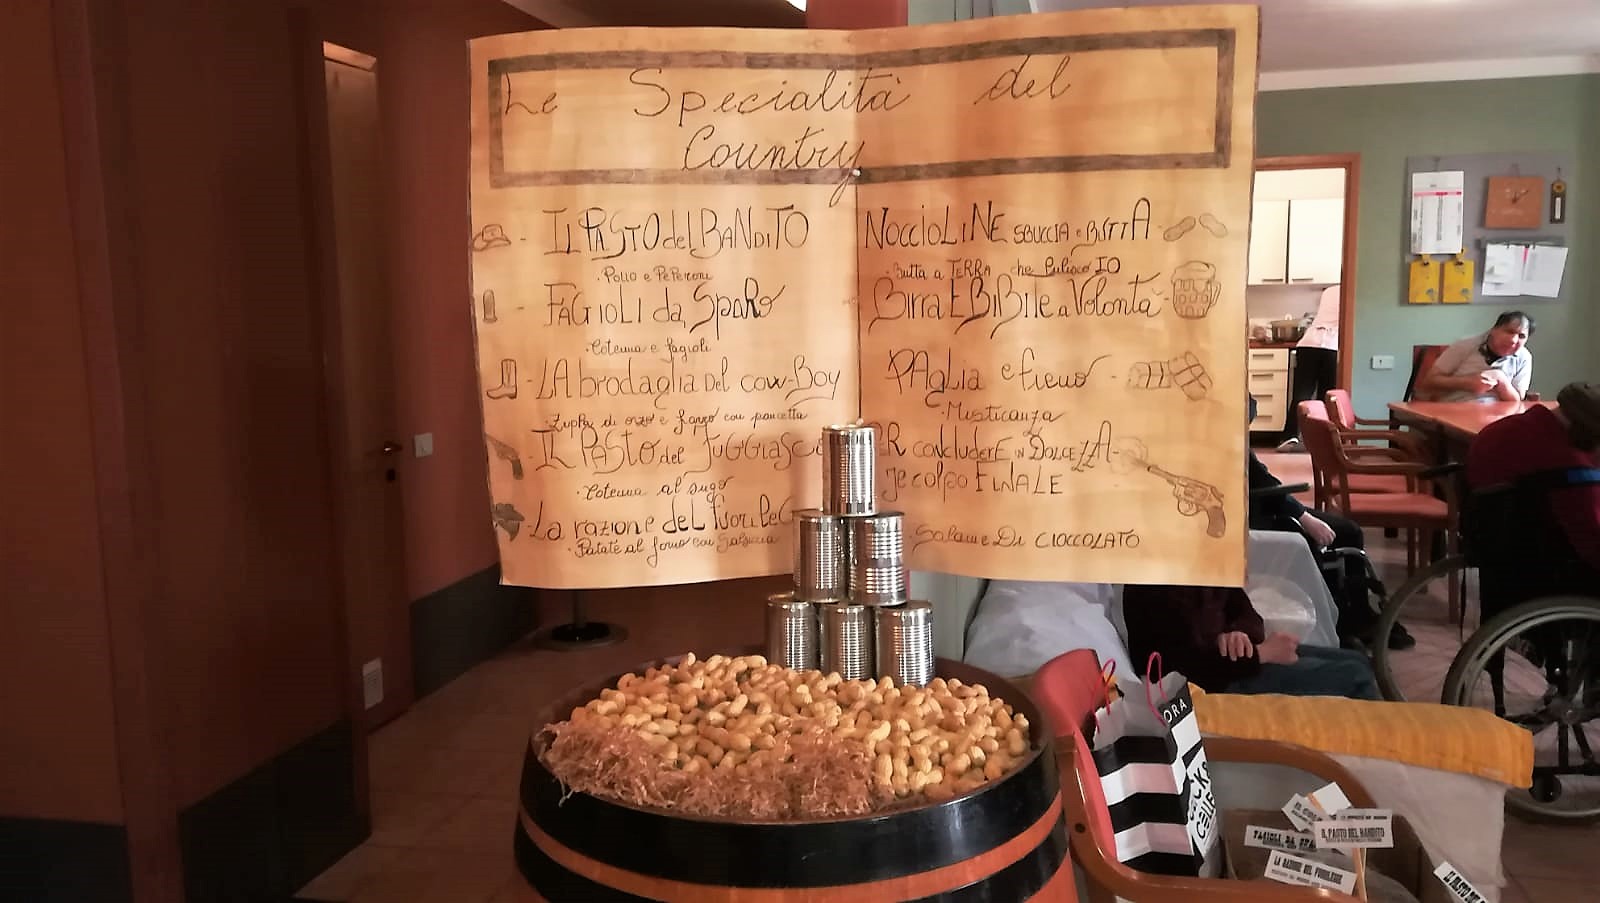 Le Specialità del
Country
IL PASTO del BANDITO
Pollo e Peperoni
FAGIOLI da SpaRo
Cotenna e fagioli
LA brodaglia del cow-Boy
Zuppa di orzo e farro con pancetta
IL PASTO del FUGGIASCO
Cotenna al sugo
La razione del fuorileg
Patate al forno con Salsiccia
NOCCIOLINE SBUCCIA e BUTTA
Butta a TERRA che Pulisco IO
Birra E BiBite a Volontà
PAglia e fieno
Misticanza
PER concludere in DOLCEZZA
Je colpo FINALE
Salame Di CIOCCOLATO
ORA
FAGIOLI DA
IL PASTO DEL BANDITO
LA RAZIONE DEL FUORILEGGE